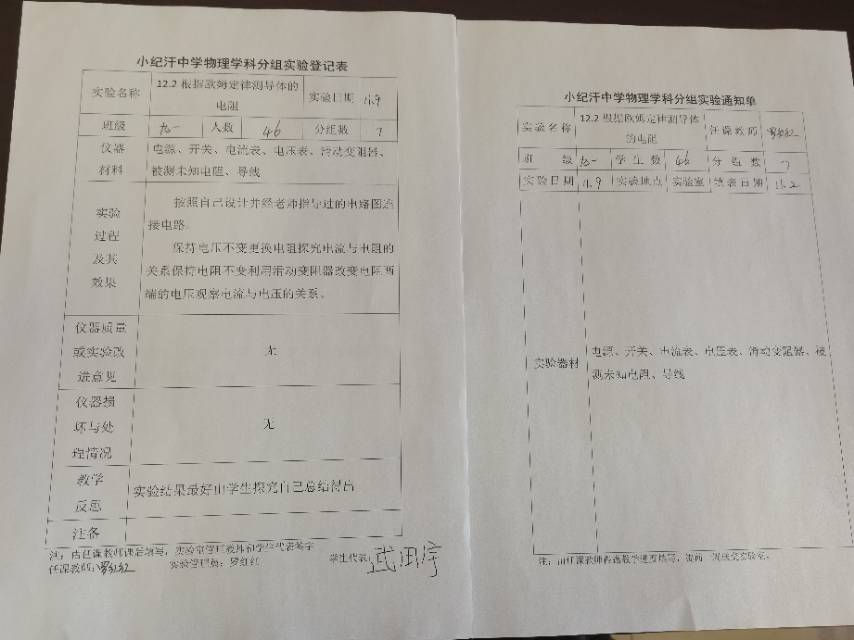 小纪汗中学物理学科分组实验登记表
实验名称 12.2根据欧姆定律测导体的电阻 实验日期 11.9
班级 九一 人数 46 分组数 7
仪器材料 电源、开关、电流表、电压表、滑动变阻器、
被测未知电阻、导线
实验过程及其效果 按照自己设计并经老师指导过的电路图连
接电路。
保持电压不变更换电阻探究电流与电阻的
关系保持电阻不变利用滑动变阻器改变电阻两
端的电压观察电流与电压的关系。
仪器质量或实验改进意见 无
仪器损坏与处理情况 无
教学反思 实验结果最好由学生探究自己总结得出
注备
注：由任课教师课后填写，实验室管理教师和学生代表签字
任课教师：罗红红 实验管理员：罗红红 学生代表：武田宇
小纪汗中学物理学科分组实验通知单
实验名称 12.2根据欧姆定律测导体的电阻 任课教师 罗红红
班级 九一 学生数 46 分组数 7
实验日期 11.9 实验地点 实验室 填表日期 11.2
实验器材 电源、开关、电流表、电压表、滑动变阻器、被
测未知电阻、导线
注：由任课教师根据教学进度填写，提前一周送交实验室。